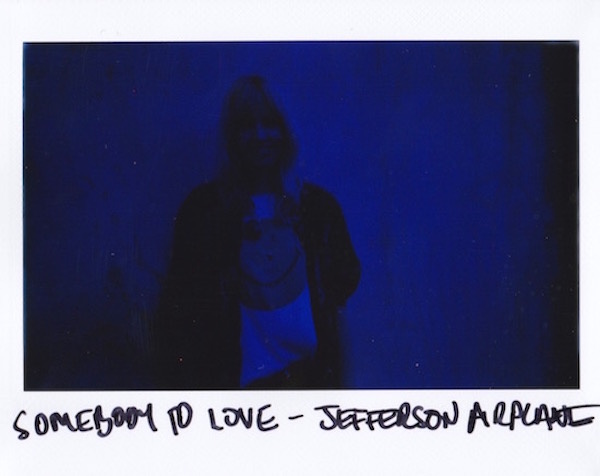 SOMEBODY TO LOVE – JEFFERSON AIRPLANE